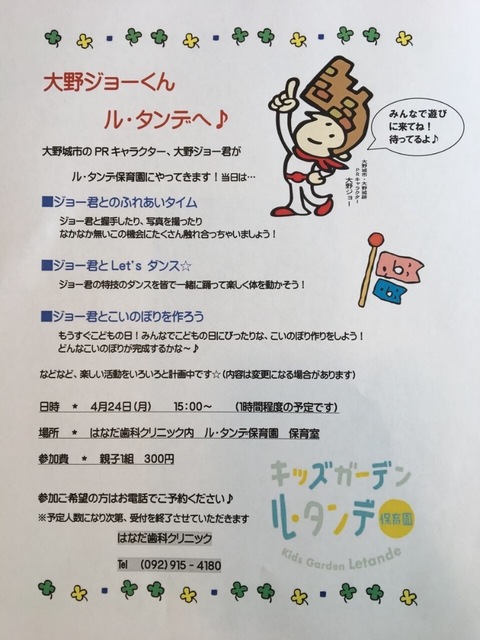 大野ジョーくん
ル・タンデへ♪
みんなで遊び
に来てね！
待ってるよ♪
大野城市のPRキャラクター、大野ジョー君が
ル・タンテ保育園にやってきます！当日は…
大野城市・大野城跡
PRキャラクター
大野ジョー
■ジョー君とのふれあいタイム
ジョー君と握手したり、写真を撮ったり
なかなか無いこの機会にたくさん触れ合っちゃいましょう！
■ジョー君とLet's ダンス☆
ジョー君の特技のダンスを皆で一緒に踊って楽しく体を動かそう！
■ジョー君とこいのぼりを作ろう
もうすぐこどもの日！みんなでこどもの日にぴったりな、こいのぼり作りをしよう！
どんなこいのぼりが完成するかな～♪
などなど、楽しい活動をいろいろと計画中です☆（内容は変更になる場合があります）
日時　＊　4月24日（月）　15：00～　（1時間程度の予定です）
場所　＊　はなだ歯科クリニック内　ル・タンテ保育園　保育室
参加費　＊　親子1組　300円
参加ご希望の方はお電話でご予約ください♪
※予定人数になり次第、受付を終了させていただきます
はなだ歯科クリニック
Tel　（092）915－4180
キッズガーデン
ル・タンデ 保育園
Kids Garden Letande